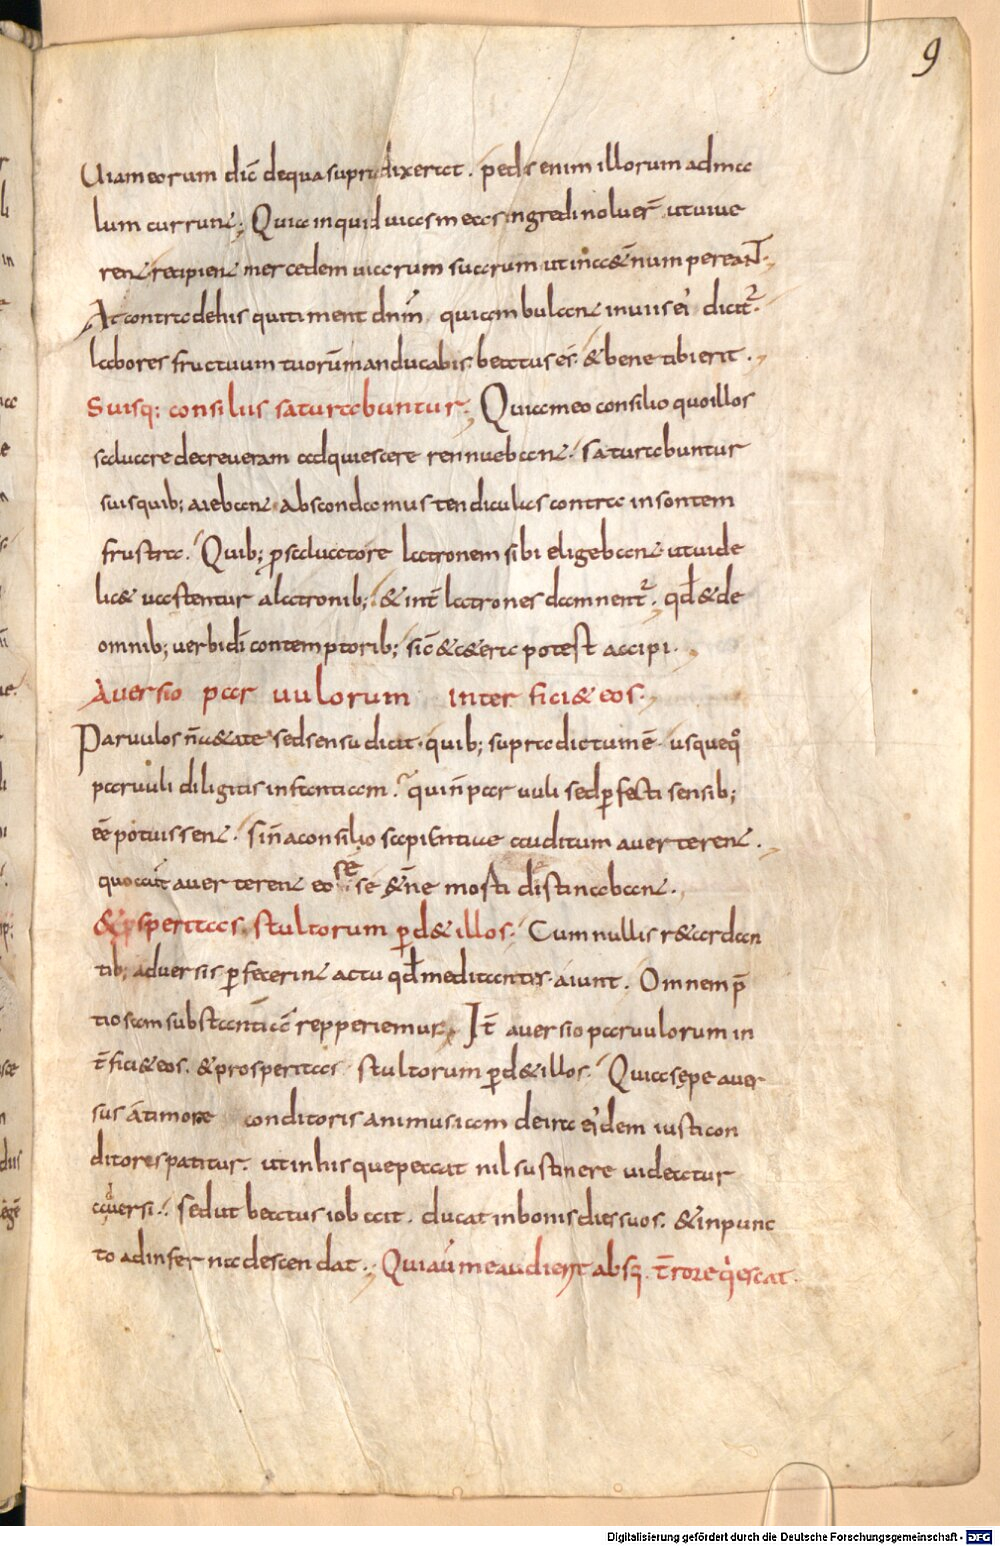 9
Uiam eorum dic̄ de qua supra dixerat. pedes enim illorum ad ma
lum currunt; Quia inquid uias meas ingredi noluer̄ ut uiue
rent recipient mercedem uiarum suarum ut in aet̄num pereant.
At contra de his qui timent dn̄m qui ambulant in uiis ei' dicit̄.
labores fructuum tuorū manducabis. beatus es. & bene tibi erit.
Suisq; consiliis saturabuntur. Quia meo consilio quo illos
saluare decreueram adquiescere rennuebant. saturabuntur
suis quib; aiebant. abscondamus tendiculas contra insontem
frustra. Quib; p saluatore latronem sibi eligebant ut uide
lic& uastentur a latronib; & int̄ latrones damnent̄. qd̄ & de
omnib; uerbi dī contemptoribus; sic̄ & c&era potest accipi.
Auersio paruulorum interfici& eos.
Paruulos n̄ aetate sed sensu dicit. quib; supra dictum ē. usqueq̊
paruuli diligitis infantiam. qui n̄ paruuli sed pfecti sensib;
eē potuissent. si n̄ a consilio sapientiae auditum auerterent.
quo aut̄ auerterent eos se & n̄e mosti distinabant.
& psperitas stultorum pd& illos. Cum nullis r&ardan
tib; aduersis pfecerint actu qd̄ meditantis. aiunt. Omnem p̄
tiosam substantiā repperiemus. It̄ auersio paruulorum in
t̄fici& eos. & prosperitas stultorum pd& illos. Quia sępe auer
sus a timore conditoris animus iam deinta ei'dem iusti con
ditoris patitur. ut in his que peccat nil sustinere uideatur
aduersi. sed ut beatus iob ait. ducat in bonis dies suos. & in punc
to ad inferna descendat. Qui aū me audierit absq; t̄rore qescat.
Digitalisierung gefördert durch die Deutsche Forschungsgemeinschaft - DFG